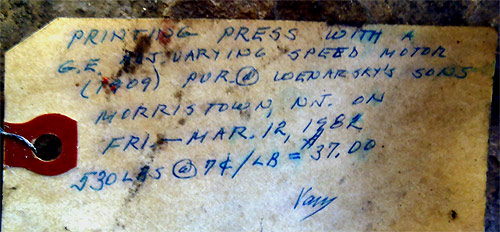 PRINTING PRESS WITH A
G.E. VARYING SPEED MOTOR
(1909) PUR. @ WENARSKY'S SONS
MORRISTOWN, N.J. ON
FRI.— MAR. 12, 1982
530 LBS @ 7¢/LB = 37.00